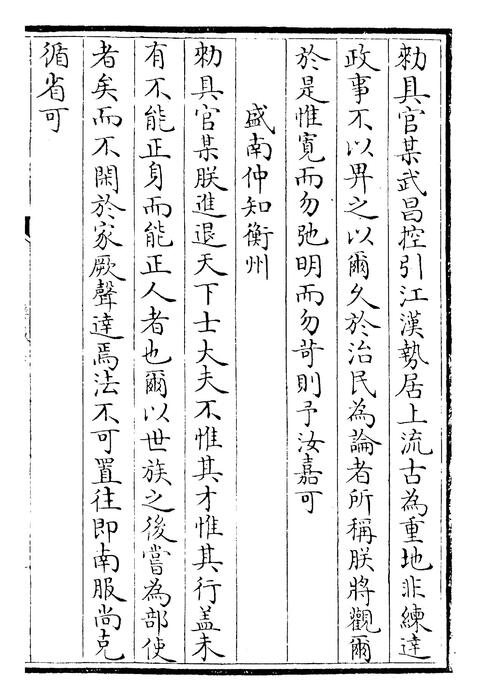 勑具官某武昌控引江漢勢居上流古為重地非練達
政事不以畀之以爾久於治民為論者所稱朕將觀爾
於是惟寛而勿弛明而勿苛則予汝嘉可
盛南仲知衡州
勑具官某朕進退天下士大夫不惟其才惟其行盖未
有不能正身而能正人者也爾以世族之後嘗為部使
者矣而不閑於家厥聲逹焉法不可置往即南服尚克
循省可